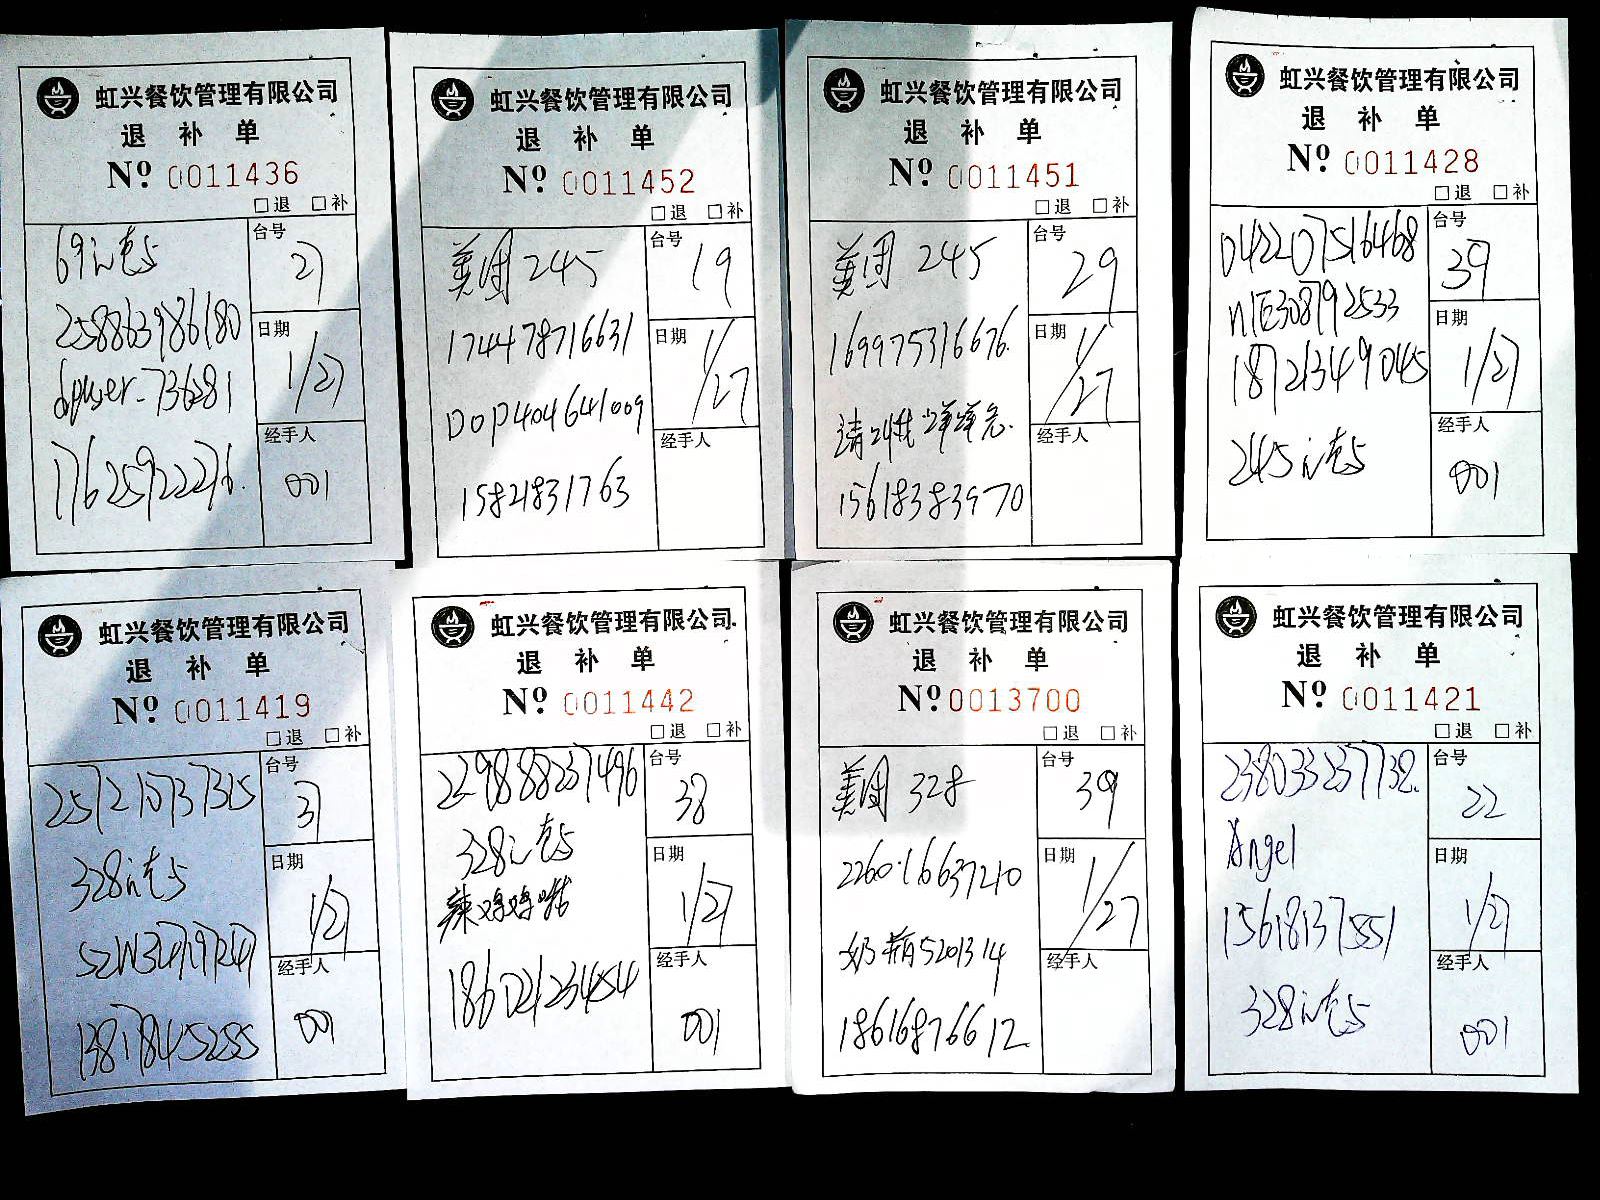 虹兴餐饮管理有限公司
退 补 单
Nº 0011436
□退 □补
69
258863986180
dpuser-736281
17625922276.
台号
27
日期
1/27
经手人
001
虹兴餐饮管理有限公司
退 补 单
Nº 0011452
□退 □补
美团 245
174478716631
DOP404641009
15821831763
台号
19
日期
1/27
经手人
虹兴餐饮管理有限公司
退 补 单
Nº 0011451
□退 □补
美团 245
169975316676.
请叫我咩咩羔.
15618383970
台号
29
日期
1/27
经手人
虹兴餐饮管理有限公司
退 补 单
Nº 0011428
□退 □补
042207516468
nTE308792533
18721349045
245
台号
39
日期
1/27
经手人
001
虹兴餐饮管理有限公司
退 补 单
Nº 0011419
□退 □补
328
13817845255
台号
31
日期
1/27
经手人
001
虹兴餐饮管理有限公司
退 补 单
Nº 0011442
□退 □补
229888237496
328
辣鸡鸡嘴
18602123454
台号
38
日期
1/27
经手人
001
虹兴餐饮管理有限公司
退 补 单
Nº 0013700
□退 □补
美团 328
226016637210
奶瓶5201314
18616876612
台号
39
日期
1/27
经手人
虹兴餐饮管理有限公司
退 补 单
Nº 0011421
□退 □补
238033237738.
Angel
15618137551
328
台号
22
日期
1/27
经手人
001